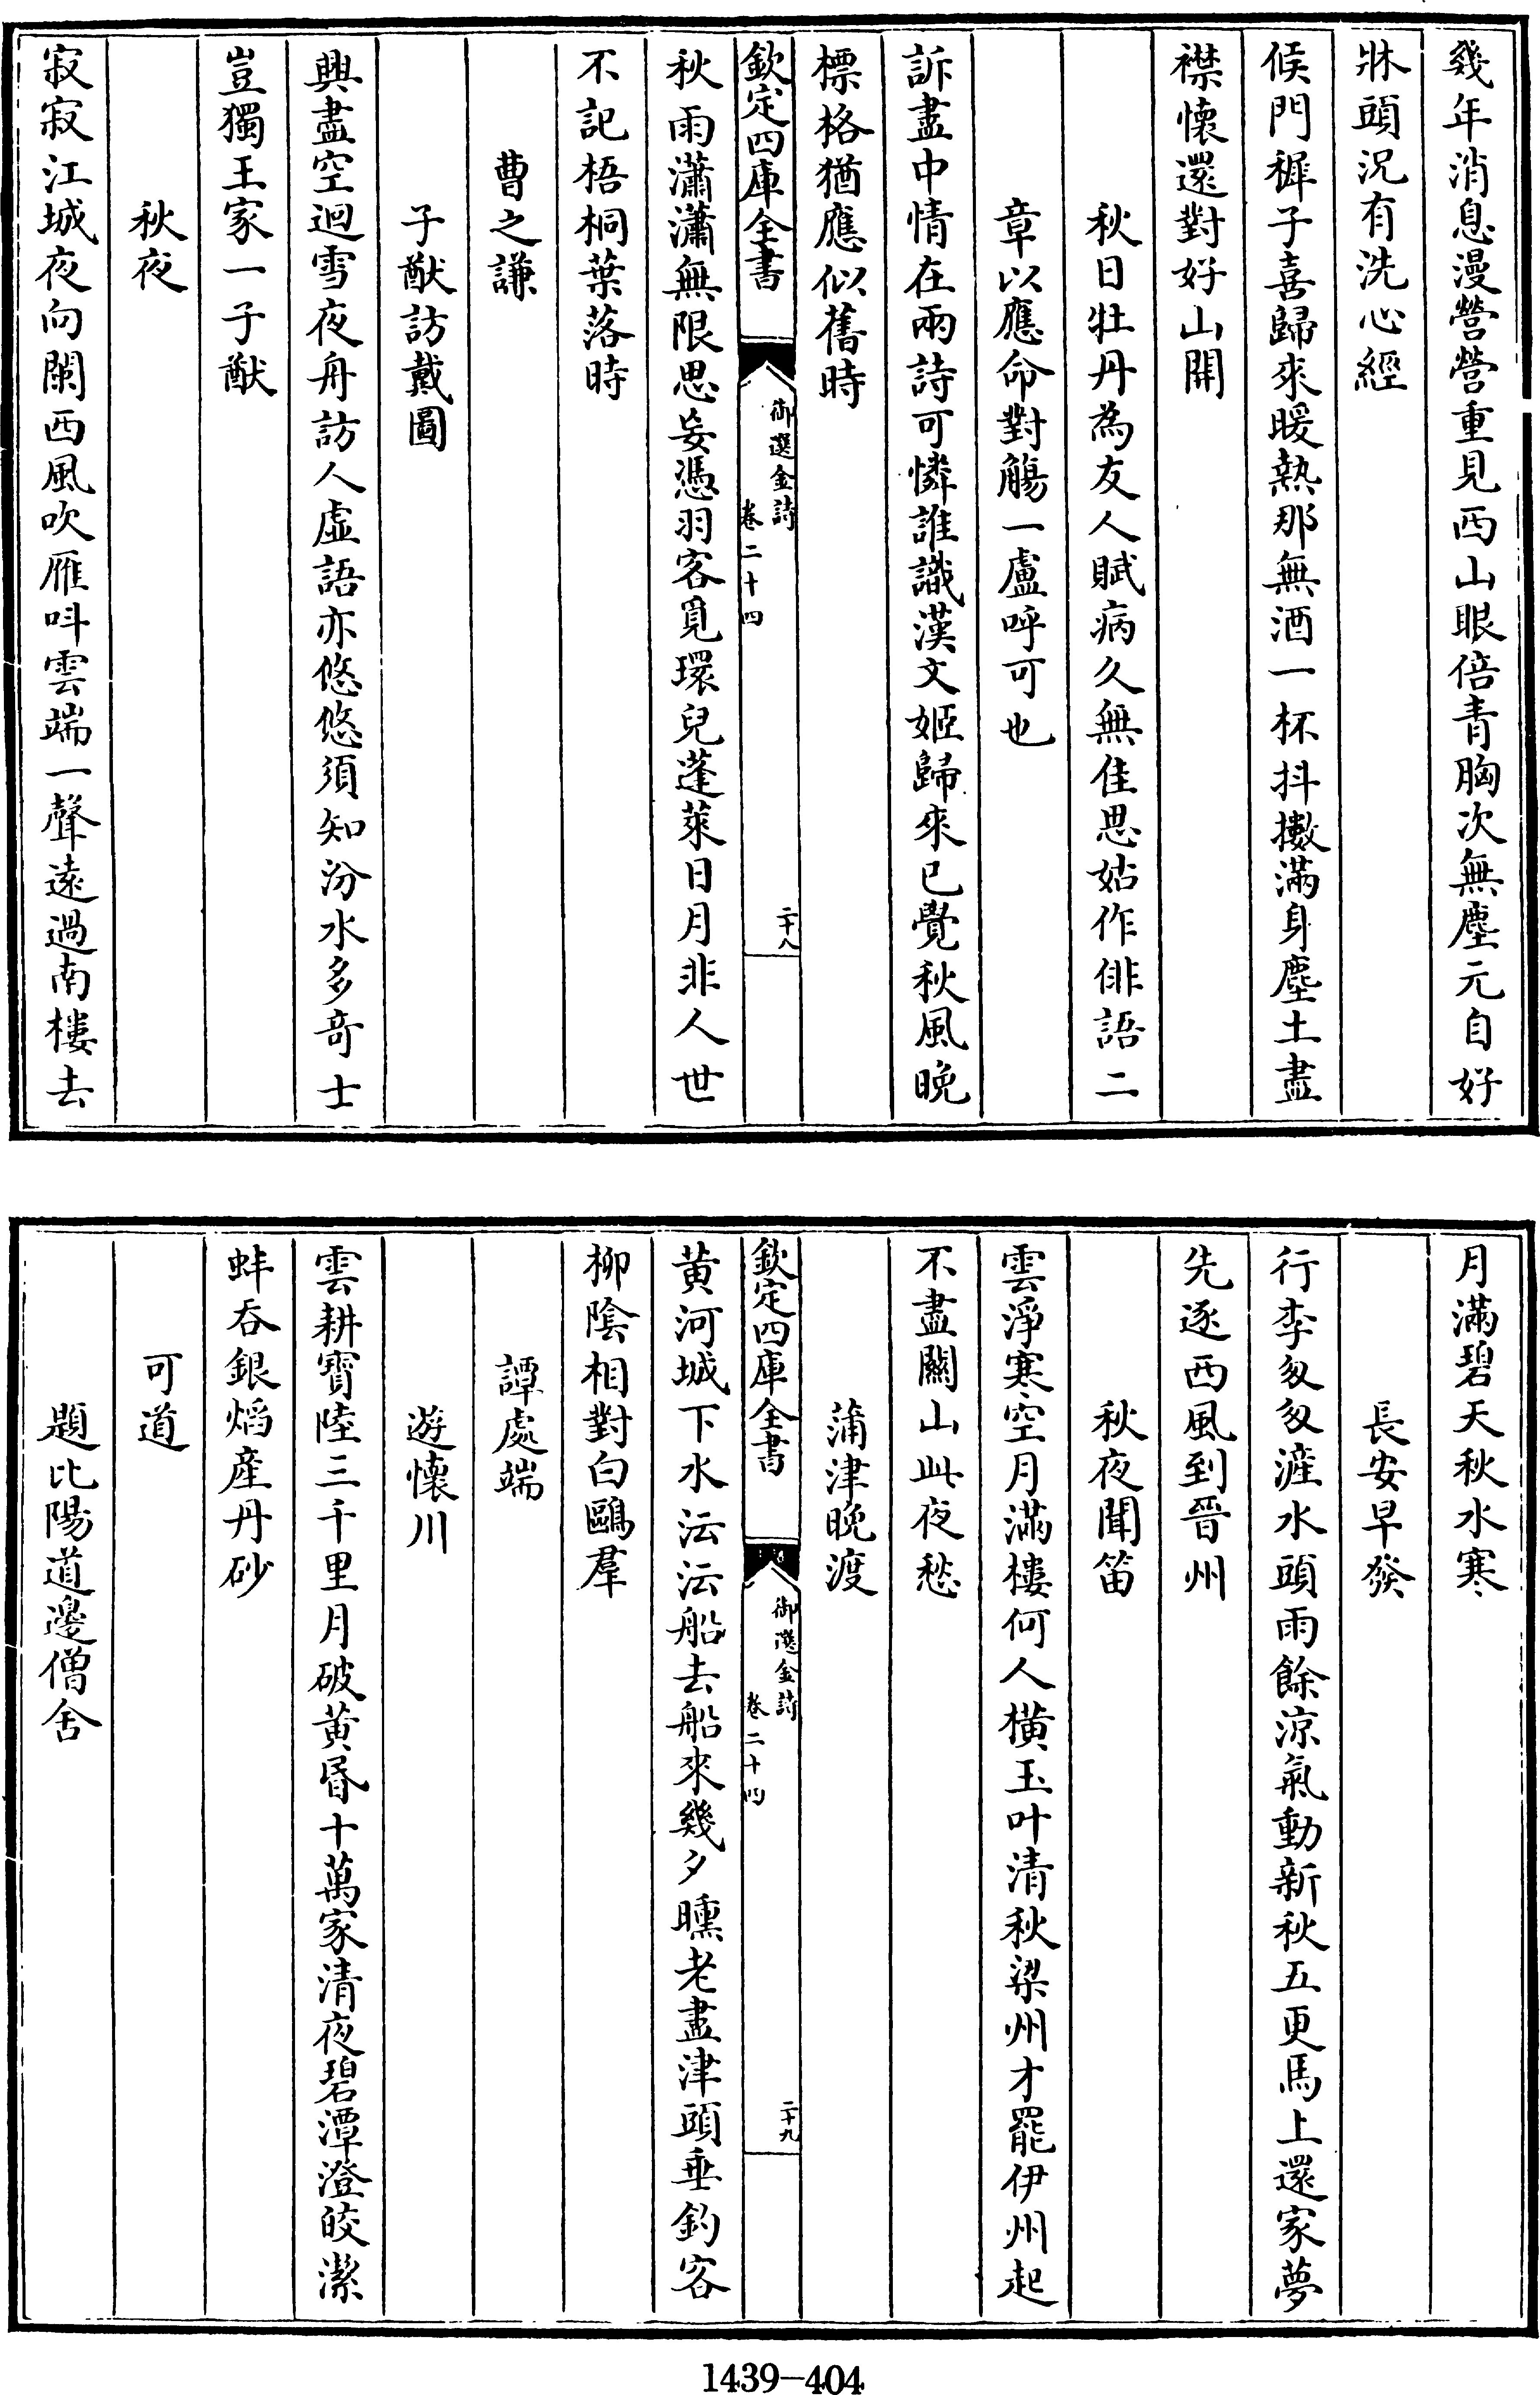 幾年消息漫營營重見西山眼倍青胸次無塵元自好
牀頭況有洗心經
候門穉子喜歸來暖熱那無酒一杯抖擻滿身塵土盡
襟懷還對好山開
秋日牡丹為友人賦病久無佳思姑作俳語二
章以應命對觴一盧呼可也
訴盡中情在兩詩可憐誰識漢文姬歸來已覺秋風晚
標格猶應似舊時
欽定四庫全書
御選金詩
卷二十四
二十八
秋雨瀟瀟無限思妄憑羽客覓環兒蓬萊日月非人世
不記梧桐葉落時
曹之謙
子猷訪戴圖
興盡空迴雪夜舟訪人虛語亦悠悠須知汾水多奇士
豈獨王家一子猷
秋夜
寂寂江城夜向闌西風吹雁呌雲端一聲遠過南樓去
月滿碧天秋水寒
長安早發
行李匆匆滻水頭雨餘涼氣動新秋五更馬上還家夢
先逐西風到晉州
秋夜聞笛
雲淨寒空月滿樓何人橫玉叶清秋梁州才罷伊州起
不盡關山此夜愁
蒲津晚渡
欽定四庫全書
御選金詩
卷二十四
二十九
黃河城下水沄沄船去船來幾夕曛老盡津頭垂釣客
柳陰相對白鷗羣
譚處端
遊懷川
雲耕寶陸三千里月破黃昏十萬家清夜碧潭澄皎潔
蚌吞銀焰產丹砂
可道
題比陽道邊僧舍
1439-404